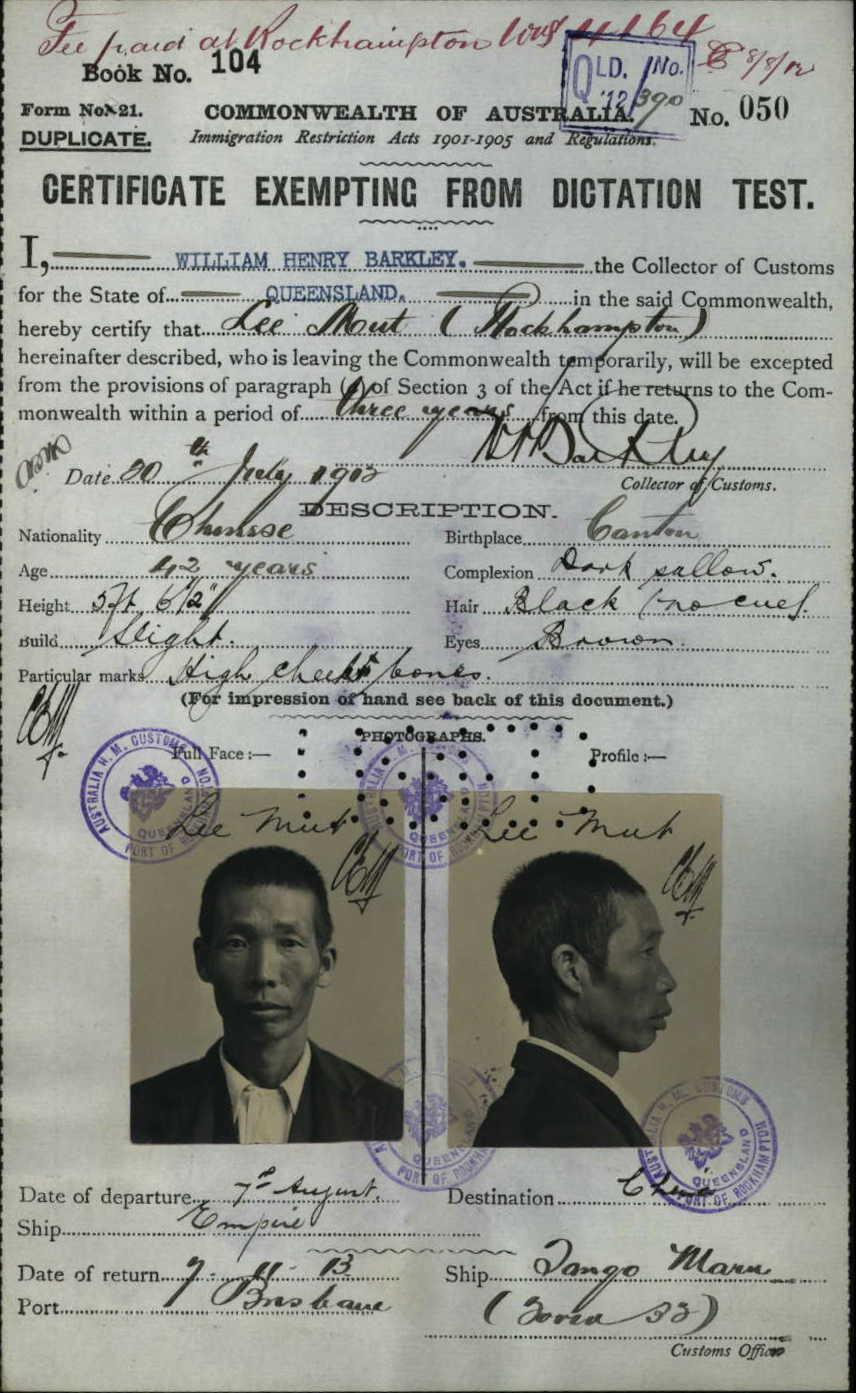 Fee paid at Rockhampton
Book No. 104
QLD. No.
'12/390
8/8/12
Form No. 21. COMMONWEALTH OF AUSTRALIA. No. 050
DUPLICATE. Immigration Restriction Acts 1901-1905 and Regulations.
CERTIFICATE EXEMPTING FROM DICTATION TEST.
I, WILLIAM HENRY BARKLEY. the Collector of Customs
for the State of QUEENSLAND. in the said Commonwealth,
hereby certify that Lee Mut (Rockhampton)
hereinafter described, who is leaving the Commonwealth temporarily, will be excepted
from the provisions of paragraph (a) of Section 3 of the Act if he returns to the Com-
monwealth within a period of three years from this date.
WHBarkley
Date 20th July 1912 Collector of Customs.
DESCRIPTION.
Nationality Chinese Birthplace Canton
Age 42 years Complexion Dark sallow.
Height 5ft 6 1/2" Hair Black (no cue).
Build Slight. Eyes Brown.
Particular marks High cheek bones.
(For impression of hand see back of this document.)
PHOTOGRAPHS.
Full Face :— Profile :—
AUSTRALIA H. M. CUSTOMS QUEENSLAND PORT OF ROCKHAMPTON
Lee Mut Lee Mut
QUEENSLAND PORT OF ROCKHAMPTON
AUSTRALIA H. M. CUSTOMS QUEENSLAND PORT OF ROCKHAMPTON
Date of departure 7th August. Destination China
Ship Empire
Date of return 7-11-13 Ship Tango Maru
Port Brisbane
Customs Officer